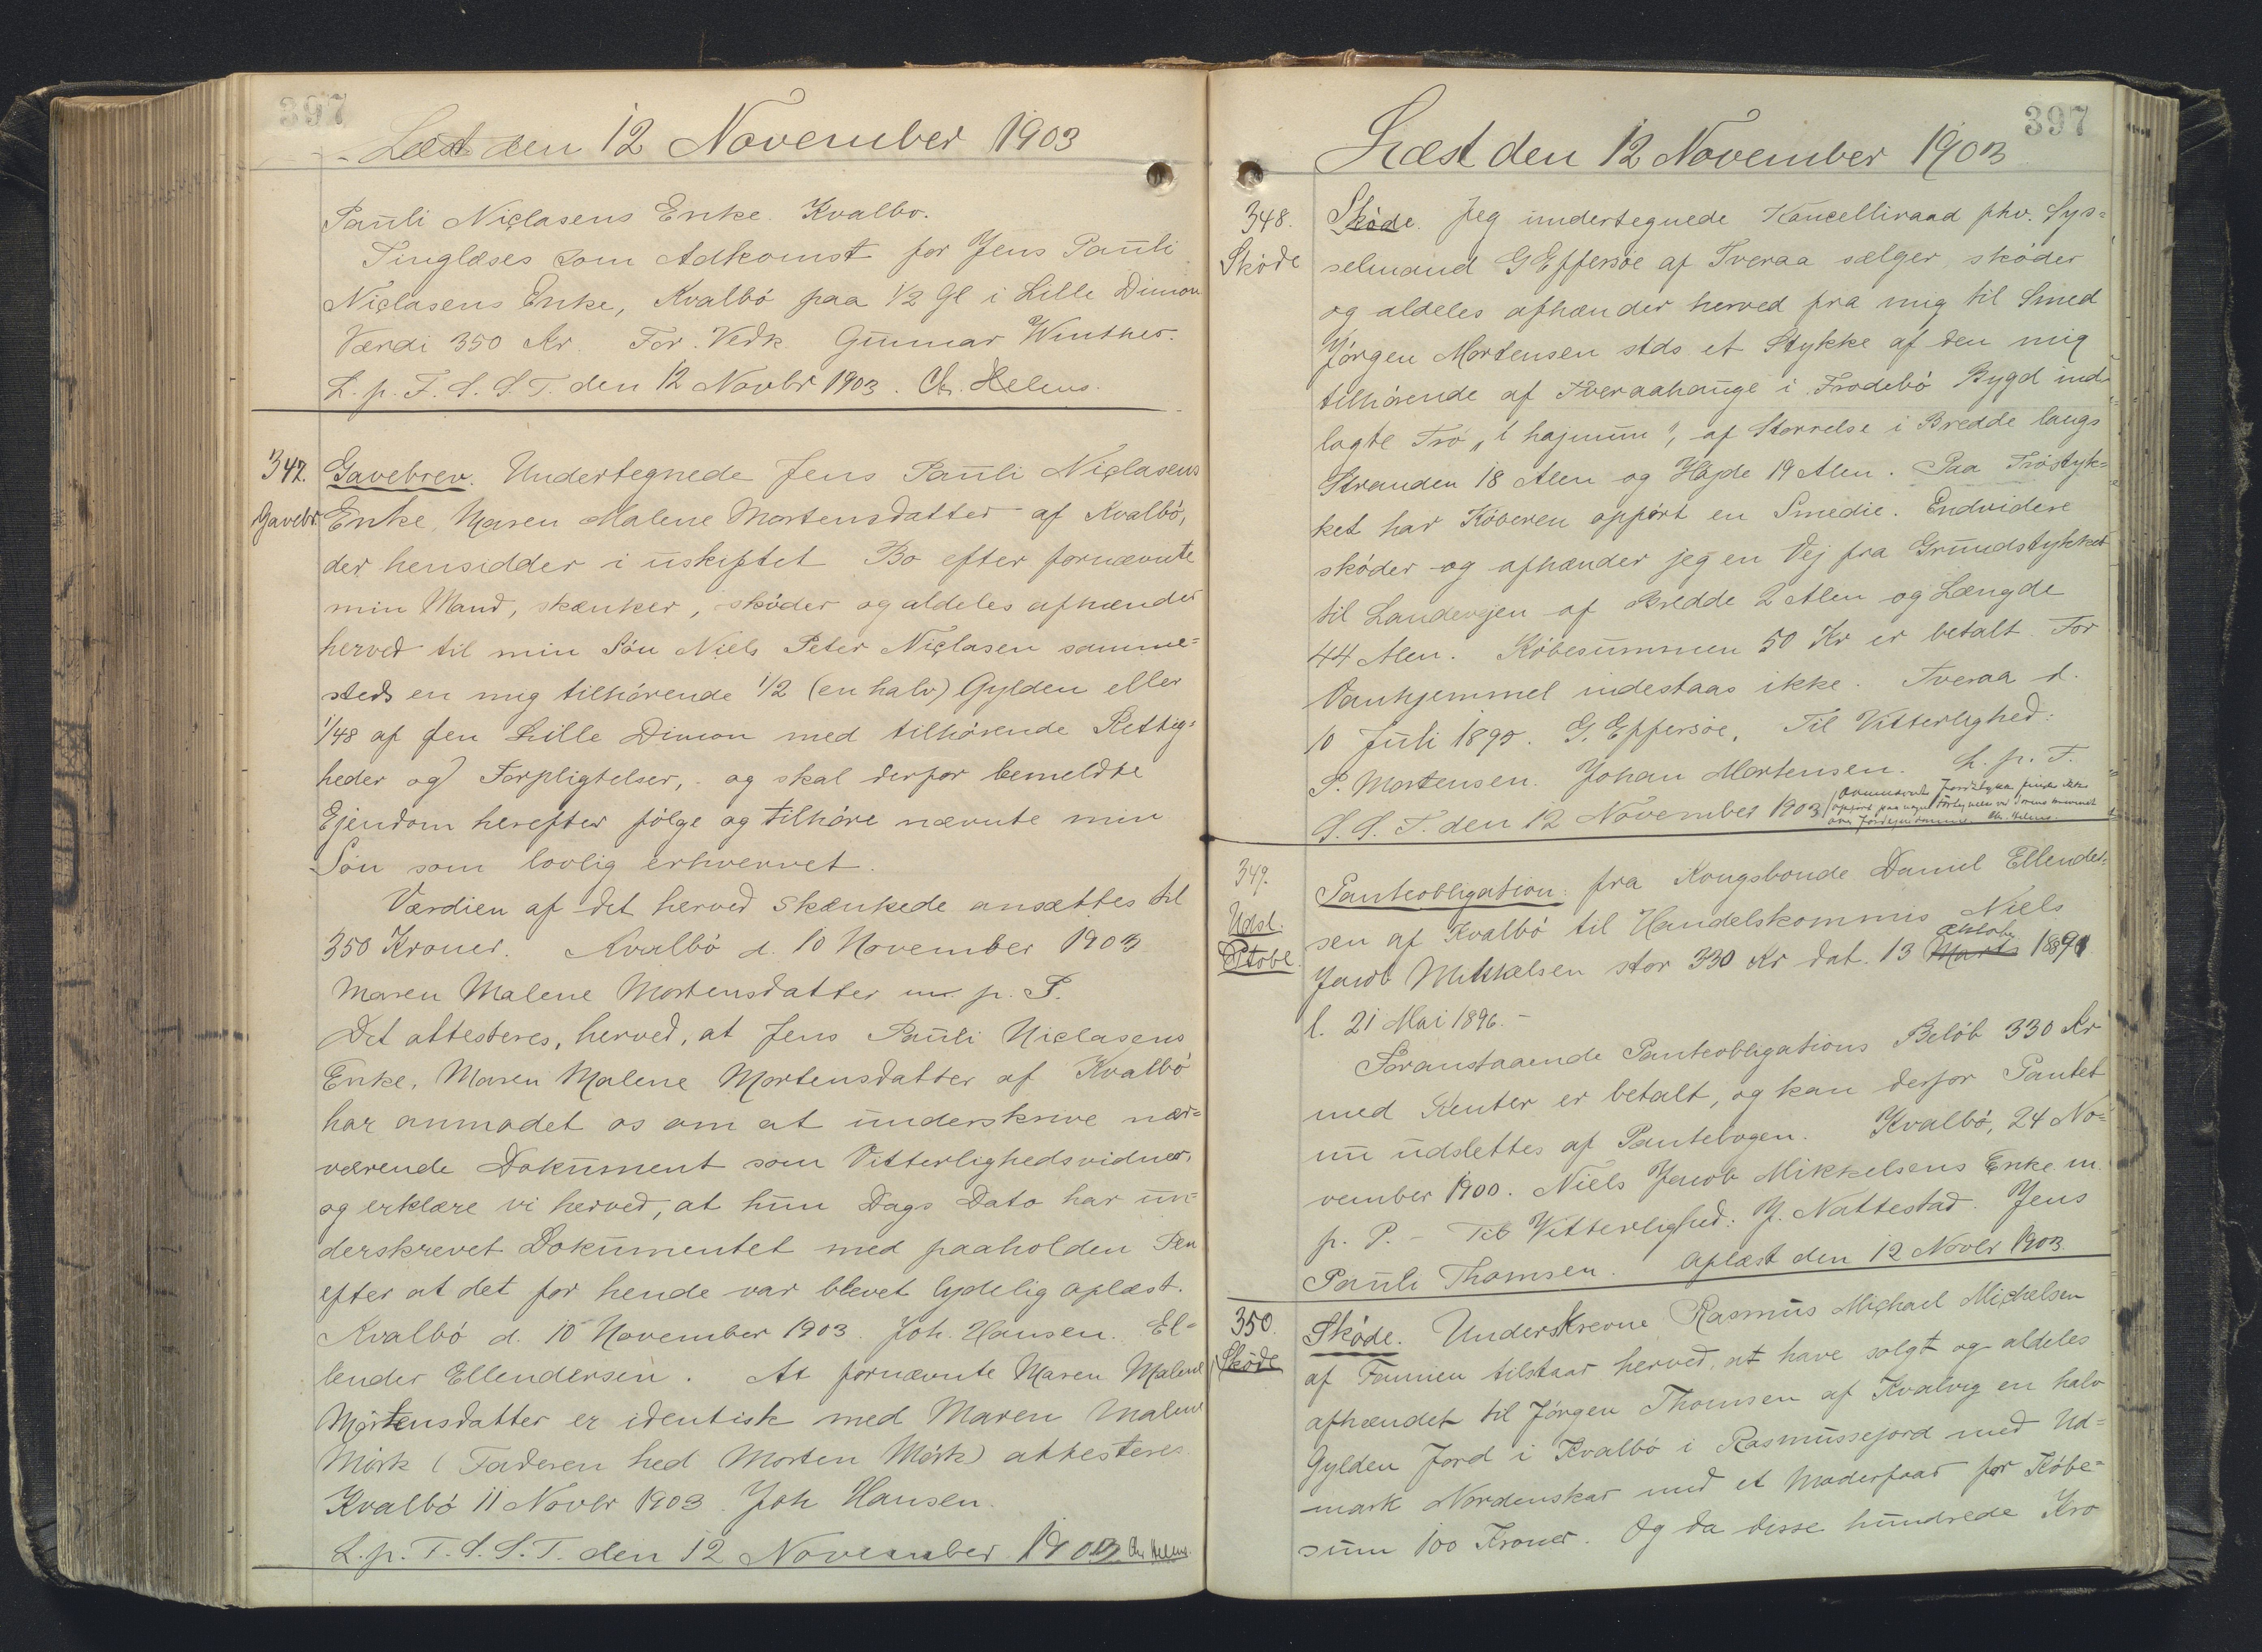 397
Læst den 12 November 1903
Pauli Niclasens Enke. Kvalbø.
Tinglæses som Adkomst for Jens Pauli
Niclasens Enke, Kvalbø paa 1/2 Gl i Lille Dimon
Værdi 350 Kr. For. Vedk. Gunnar Winther.
L. p. F. S. S. T. den 12 Novbr 1903. Chr. Helms.
347. Gavebrev. Undertegnede Jens Pauli Niclasens
Gavebr. Enke, Maren Malene Mortensdatter af Kvalbø,
der hensidder i uskiftet Bo efter fornævnte
min Mand, skænker, skøder og aldeles afhænder
herved til min Søn Niels Peter Niclasen samme=
steds en mig tilhørende 1/2 (en halv) Gylden eller
1/48 af Øen Lille Dimon med tilhørende Rettig=
heder og Forpligtelser, og skal derfor bemeldte
Ejendom herefter følge og tilhøre nævnte min
Søn som lovlig erhvervet.
Værdien af det herved skænkede ansættes til
350 Kroner. Kvalbø d. 10 November 1903
Maren Malene Mortensdatter m. p. P.
Det attesteres, herved, at Jens Pauli Niclasens
Enke, Maren Malene Mortensdatter af Kvalbø
har anmodet os om at underskrive nær=
værende Dokument som Vitterlighedsvidner,
og erklære vi herved, at hun Dags Dato har un=
derskrevet Dokumentet med paaholden Pen
efter at det for hende var blevet lydelig oplæst.
Kvalbø d. 10 November 1903. Joh. Hansen. El=
lender Ellendersen. At fornævnte Maren Malene
Mortensdatter er identisk med Maren Malene
Mørk (Faderen hed Morten Mørk) attesteres
Kvalbø 11 Novbr 1903. Joh Hansen.
L. p. F. S. S. T. den 12 November 1903 Chr Helms.
397
Læst den 12 November 1903
348. Skøde. Jeg undertegnede Kancelliraad fhv. Sys=
Skøde selmand G Effersøe af Tveraa sælger, skøder
og aldeles afhænder herved fra mig til Smed
Jørgen Mortensen stds et Stykke af den mig
tilhørende af Tveraahauge i Frodebø Bygd ind=
lagte Trø "i hajnum", af Størrelse i Bredde langs
Stranden 18 Alen og Højde 19 Alen. Paa Trøstyk=
ket har Køberen opført en Smedie. Endvidere
skøder og afhænder jeg en Vej fra Grundstykket
til Landevejen af Bredde 2 Alen og Længde
44 Alen. Købesummen 50 Kr er betalt. For
Vanhjemmel indestaas ikke. Tveraa d.
10 Juli 1895. G. Effersøe. Til Vitterlighed:
P. Mortensen. Johan Mortensen. L. p. F.
S. S. T. den 12 November 1903
Chr. Helms.
349. Panteobligation: fra Kongsbonde Daniel Ellender=
Udsl. sen af Kvalbø til Handelskommis Niels
Ptobl. Jacob Mikkelsen stor 330 Kr dat. 13 Marts Oktober 1891
l. 21 Mai 1896. -
Foranstaaende Panteobligations Beløb 330 Kr
med Renter er betalt, og kan derfor Pantet
nu udslettes af Pantebogen. Kvalbø, 24 No=
vember 1900. Niels Jacob Mikkelsens Enke m.
p. P. - Til Vitterlighed: J. Nattestad. Jens
Pauli Thomsen. Aplæst den 12 Novbr 1903.
350. Skøde. Underskrevne Rasmus Michael Michelsen
Skøde af Famien tilstaar herved, at have solgt og aldeles
afhændet til Jørgen Thomsen af Kvalvig en halv
Gylden Jord i Kvalbø i Rasmussejord med Ud=
mark Nordenskar med et Moderfaar for Købe=
sum 100 Kroner. Og da disse hundrede Kro